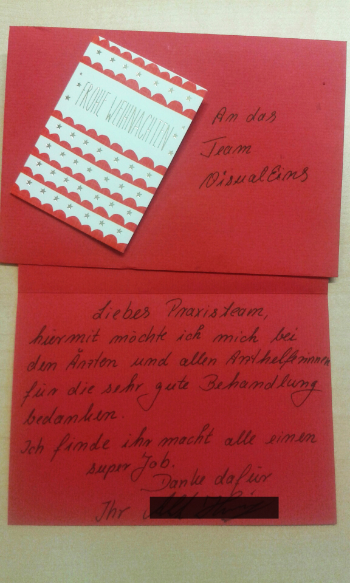 FROHE WEIHNACHTEN
An das
Team
VisualEins
Liebes Praxisteam,
hiermit möchte ich mich bei
den Ärzten und allen Arzthelferinnen
für die sehr gute Behandlung
bedanken.
Ich finde ihr macht alle einen
super Job.
Danke dafür
Ihr